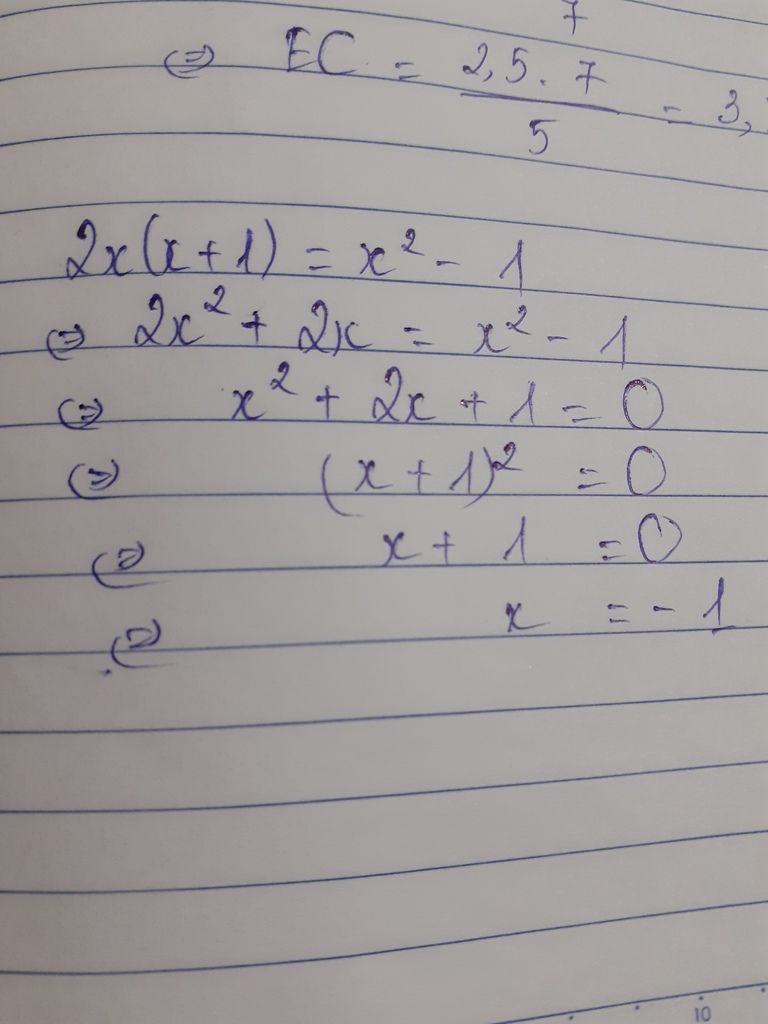 7
⇔ EC = 2,5 . 7 / 5 = 3,
2x(x+1) = x² - 1
⇔ 2x² + 2x = x² - 1
⇔ x² + 2x + 1 = 0
⇔ (x + 1)² = 0
⇔ x + 1 = 0
⇔ x = - 1
10